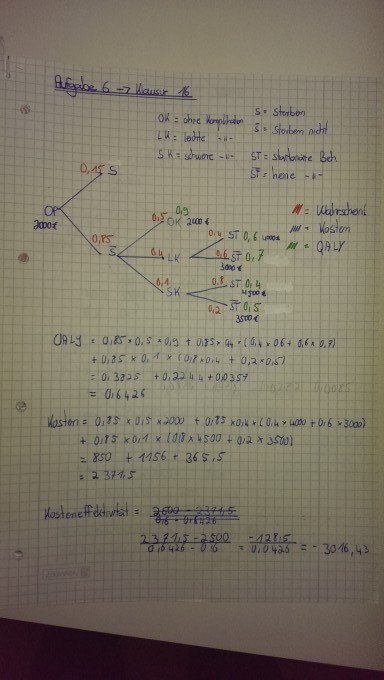 Aufgabe 6 → Klausur 16
OK = ohne Komplikationen
S = Sterben
LK = leichte -"-
S̄ = Sterben nicht
SK = schwere -"-
ST = stationäre Beh.
S̄T̄ = keine -"-
0,15 S
OP
2000€
0,85 S̄
0,5 OK 0,9 2000€
0,4 LK
0,4 ST 0,6 4000€
0,6 S̄T̄ 0,7
3000€
0,1 SK
0,8 ST 0,4
4500€
0,2 S̄T̄ 0,5
3500€
/// = Wahrscheinl.
/// = Kosten
/// = QALY
QALY = 0,85 x 0,5 x 0,9 + 0,85 x 0,4 x (0,4 x 0,6 + 0,6 x 0,7)
+ 0,85 x 0,1 x (0,8 x 0,4 + 0,2 x 0,5)
= 0,3825 + 0,2244 + 0,0357
= 0,6426
Kosten = 0,85 x 0,5 x 2000 + 0,85 x 0,4 x (0,4 x 4000 + 0,6 x 3000)
+ 0,85 x 0,1 x (0,8 x 4500 + 0,2 x 3500)
= 850 + 1156 + 365,5
= 2371,5
Kosteneffektivität = 2500 - 2371,5
0,6 - 0,6426
2371,5 - 2500 = -128,5 = - 3016,43
0,6426 - 0,6 0,0426